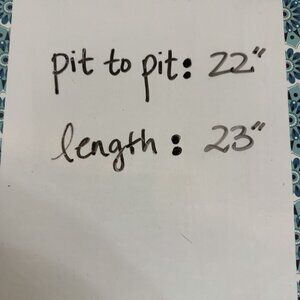 pit to pit: 22"
length: 23"